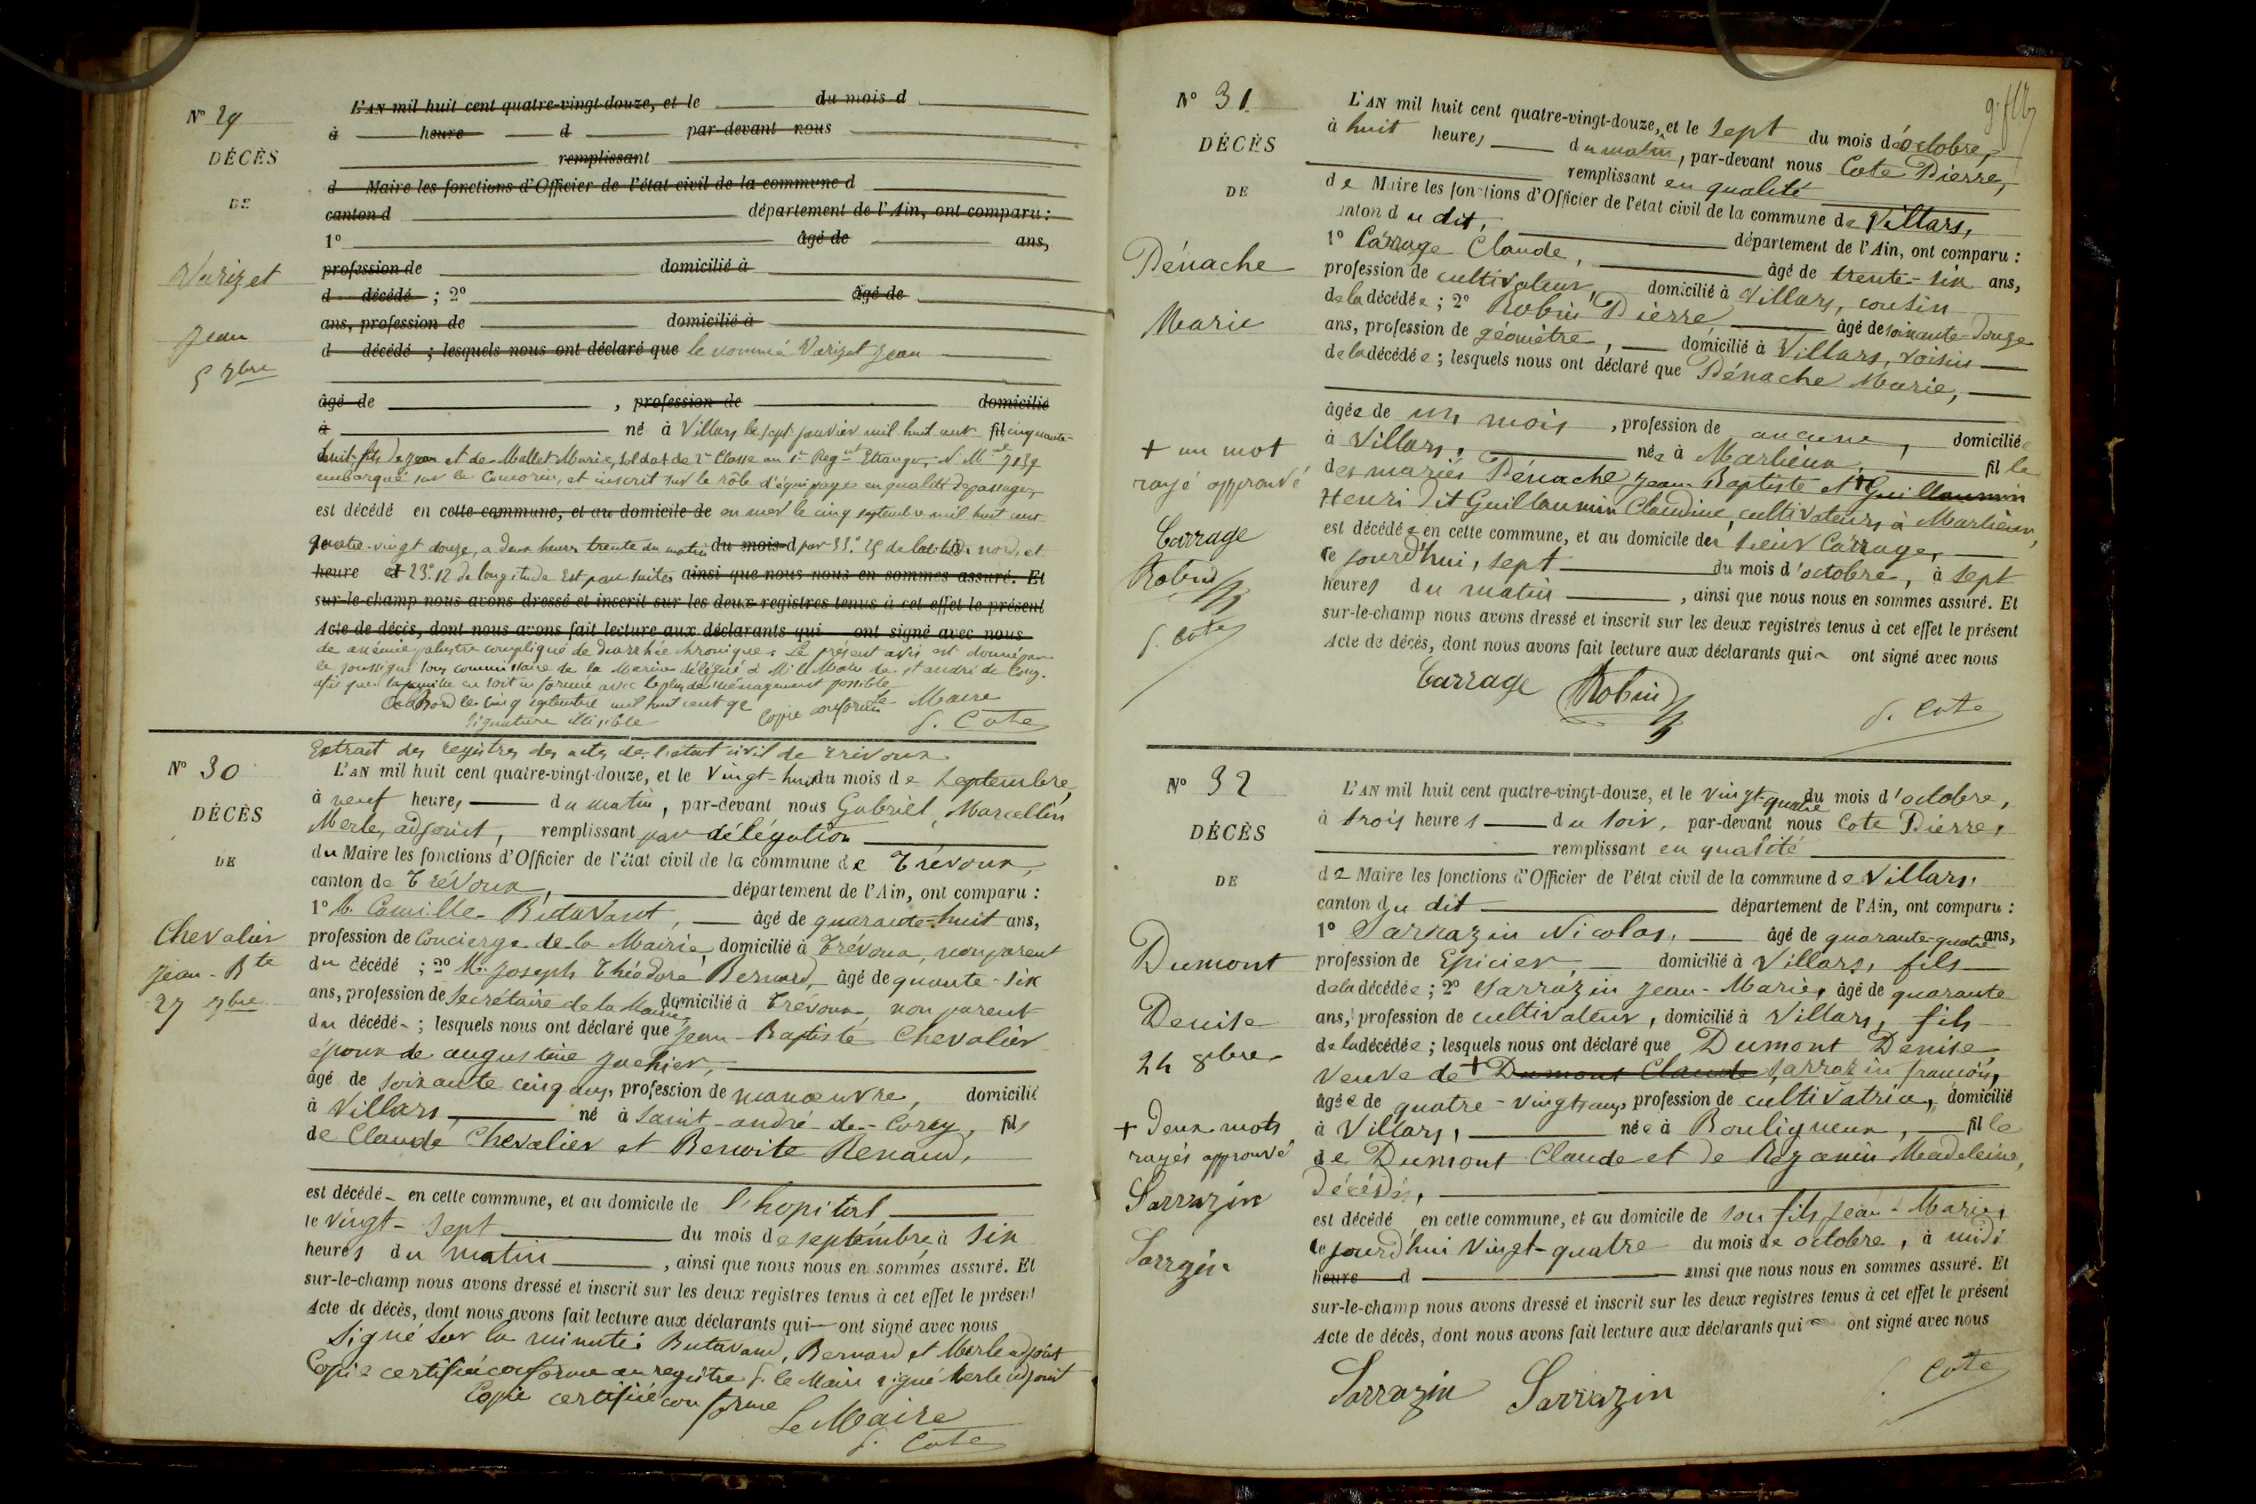 N° 29
DÉCÈS
DE
Varizet
Jean
5 7bre
L'AN mil huit cent quatre-vingt-douze, et le du mois d
à heure d par-devant nous
remplissant
d Maire les fonctions d'Officier de l'état civil de la commune d
canton d département de l'Ain, ont comparu :
1° âgé de ans,
profession de domicilié à
d décédé ; 2° âgé de
ans, profession de domicilié à
d décédé ; lesquels nous ont déclaré que le nommé Varizet Jean
âgé de , profession de domicilié
à né à Villars le sept janvier mil huit cent fil cinquante-
huit, fils de Jean et de Mallet Marie, soldat de 2e Classe au 1er Regnt Etranger, N° Mle 7137
embarqué sur le Comorin, et inscrit sur le rôle d'équipage en qualité de passager,
est décédé en cette commune, et au domicile de en mer le cinq septembre mil huit cent
quatre-vingt douze, a deux heures trente du matin du mois d par 33° 25 de latitude nord, et
heure et 23° 12 de longitude Est par suites ainsi que nous nous en sommes assuré. Et
sur-le-champ nous avons dressé et inscrit sur les deux registres tenus à cet effet le présent
Acte de décès, dont nous avons fait lecture aux déclarants qui ont signé avec nous
de anémie palustre compliqué de diarrhée chronique. Le présent avis est donné par
le soussigné sous commissaire de la Marine délégué à Mr le Maire de St andré de Corcy
afin que la famille en soit informée avec le plus de ménagement possible
A Bord le cinq septembre mil huit cent 92
Signature illisible Copie conforme Le Maire
P. Cote
N° 30
DÉCÈS
DE
Chevalier
Jean-Bte
27 7bre
Extrait des registres des actes de l'état civil de Trévoux
L'AN mil huit cent quatre-vingt-douze, et le vingt-huit du mois de Septembre,
à neuf heures du matin, par-devant nous Gabriel, Marcellin
Merle, adjoint, remplissant par délégation
du Maire les fonctions d'Officier de l'état civil de la commune de Trévoux,
canton de Trévoux, département de l'Ain, ont comparu :
1° M. Camille Butavant, âgé de quarante-huit ans,
profession de Concierge de la Mairie, domicilié à Trévoux, non parent
du décédé ; 2° M. Joseph Théodore Bernard, âgé de quante-six
ans, profession de Secrétaire de la Mairie domicilié à Trévoux, non parent
du décédé ; lesquels nous ont déclaré que Jean-Baptiste Chevalier
époux de augustine Juenier,
âgé de soixante cinq ans, profession de manœuvre, domicilié
à Villars, né à Saint-andré-de-Corcy, fils
de Claude Chevalier et Benoite Renaud,
est décédé en cette commune, et au domicile de l'hopital,
le vingt-sept du mois de septembre, à six
heures du matin , ainsi que nous nous en sommes assuré. Et
sur-le-champ nous avons dressé et inscrit sur les deux registres tenus à cet effet le présent
Acte de décès, dont nous avons fait lecture aux déclarants qui ont signé avec nous
Signé sur la minute: Butavand, Bernard et Merle adjoint
Copie certifiée conforme au registre P. le Maire signé Merle adjoint
Copie certifiée conforme
Le Maire
P. Cote
N° 31
DÉCÈS
DE
Pénache
Marie
+ un mot
rayé approuvé
Carrage
Robin
P. Cote
L'AN mil huit cent quatre-vingt-douze, et le sept du mois d'octobre,
à huit heures du matin, par-devant nous Cote Pierre,
remplissant en qualité
de Maire les fonctions d'Officier de l'état civil de la commune de Villars,
canton du dit, département de l'Ain, ont comparu :
1° Carrage Claude, âgé de trente-six ans,
profession de cultivateur, domicilié à Villars, cousin
de la décédée ; 2° Robin Pierre, âgé de soixante-douze
ans, profession de géomètre, domicilié à Villars, voisin
de la décédée ; lesquels nous ont déclaré que Pénache Marie,
âgée de un mois, profession de aucune, domiciliée
à Villars, née à Marlieux, fille
des mariés Pénache Jean Baptiste et + Guillaumin
Henri dit Guillaumin Claudine, cultivateurs à Marlieux,
est décédée en cette commune, et au domicile de sieur Carrage,
ce jourd'hui, sept du mois d'octobre, à sept
heures du matin , ainsi que nous nous en sommes assuré. Et
sur-le-champ nous avons dressé et inscrit sur les deux registres tenus à cet effet le présent
Acte de décès, dont nous avons fait lecture aux déclarants qui ont signé avec nous
Carrage Robin P. Cote
N° 32
DÉCÈS
DE
Dumont
Denise
24 8bre
+ Deux mots
rayés approuvé
Sarrazin
Sarrazin
L'AN mil huit cent quatre-vingt-douze, et le vingt-quatre du mois d'octobre,
à trois heures du soir, par-devant nous Cote Pierre,
remplissant en qualité
de Maire les fonctions d'Officier de l'état civil de la commune de Villars,
canton du dit département de l'Ain, ont comparu :
1° Sarrazin Nicolas, âgé de quarante-quatre ans,
profession de Epicier, domicilié à Villars, fils
de la décédée ; 2° Sarrazin Jean-Marie, âgé de quarante
ans, profession de cultivateur, domicilié à Villars, fils
de la décédée ; lesquels nous ont déclaré que Dumont Denise,
veuve de + Dumont Claude Sarrazin françois,
âgée de quatre-vingts ans, profession de cultivatrice, domicilié
à Villars, née à Bouligneux, fille
de Dumont Claude et de Rozanin Madeleine,
Décédés,
est décédé en cette commune, et au domicile de son fils Jean-Marie,
ce jourd'hui vingt-quatre du mois de octobre, à midi
heure d ainsi que nous nous en sommes assuré. Et
sur-le-champ nous avons dressé et inscrit sur les deux registres tenus à cet effet le présent
Acte de décès, dont nous avons fait lecture aux déclarants qui ont signé avec nous
Sarrazin Sarrazin P. Cote